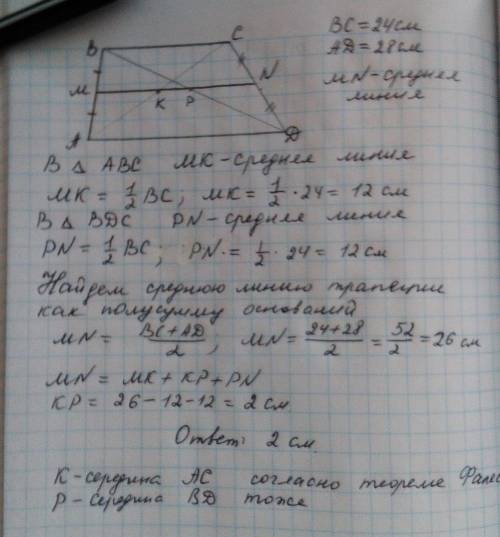 BC = 24 см
AD = 28 см
MN - средняя
линия
B
C
M
N
K
P
A
D
В △ ABC MK - средняя линия
MK = 1/2 BC; MK = 1/2 · 24 = 12 см
В △ BDC PN - средняя линия
PN = 1/2 BC; PN = 1/2 · 24 = 12 см
Найдем среднюю линию трапеции
как полусумму оснований
MN = BC + AD / 2, MN = 24+28 / 2 = 52 / 2 = 26 см
MN = MK + KP + PN
KP = 26 - 12 - 12 = 2 см.
Ответ: 2 см.
K - середина AC согласно теореме Фалес
P - середина BD тоже